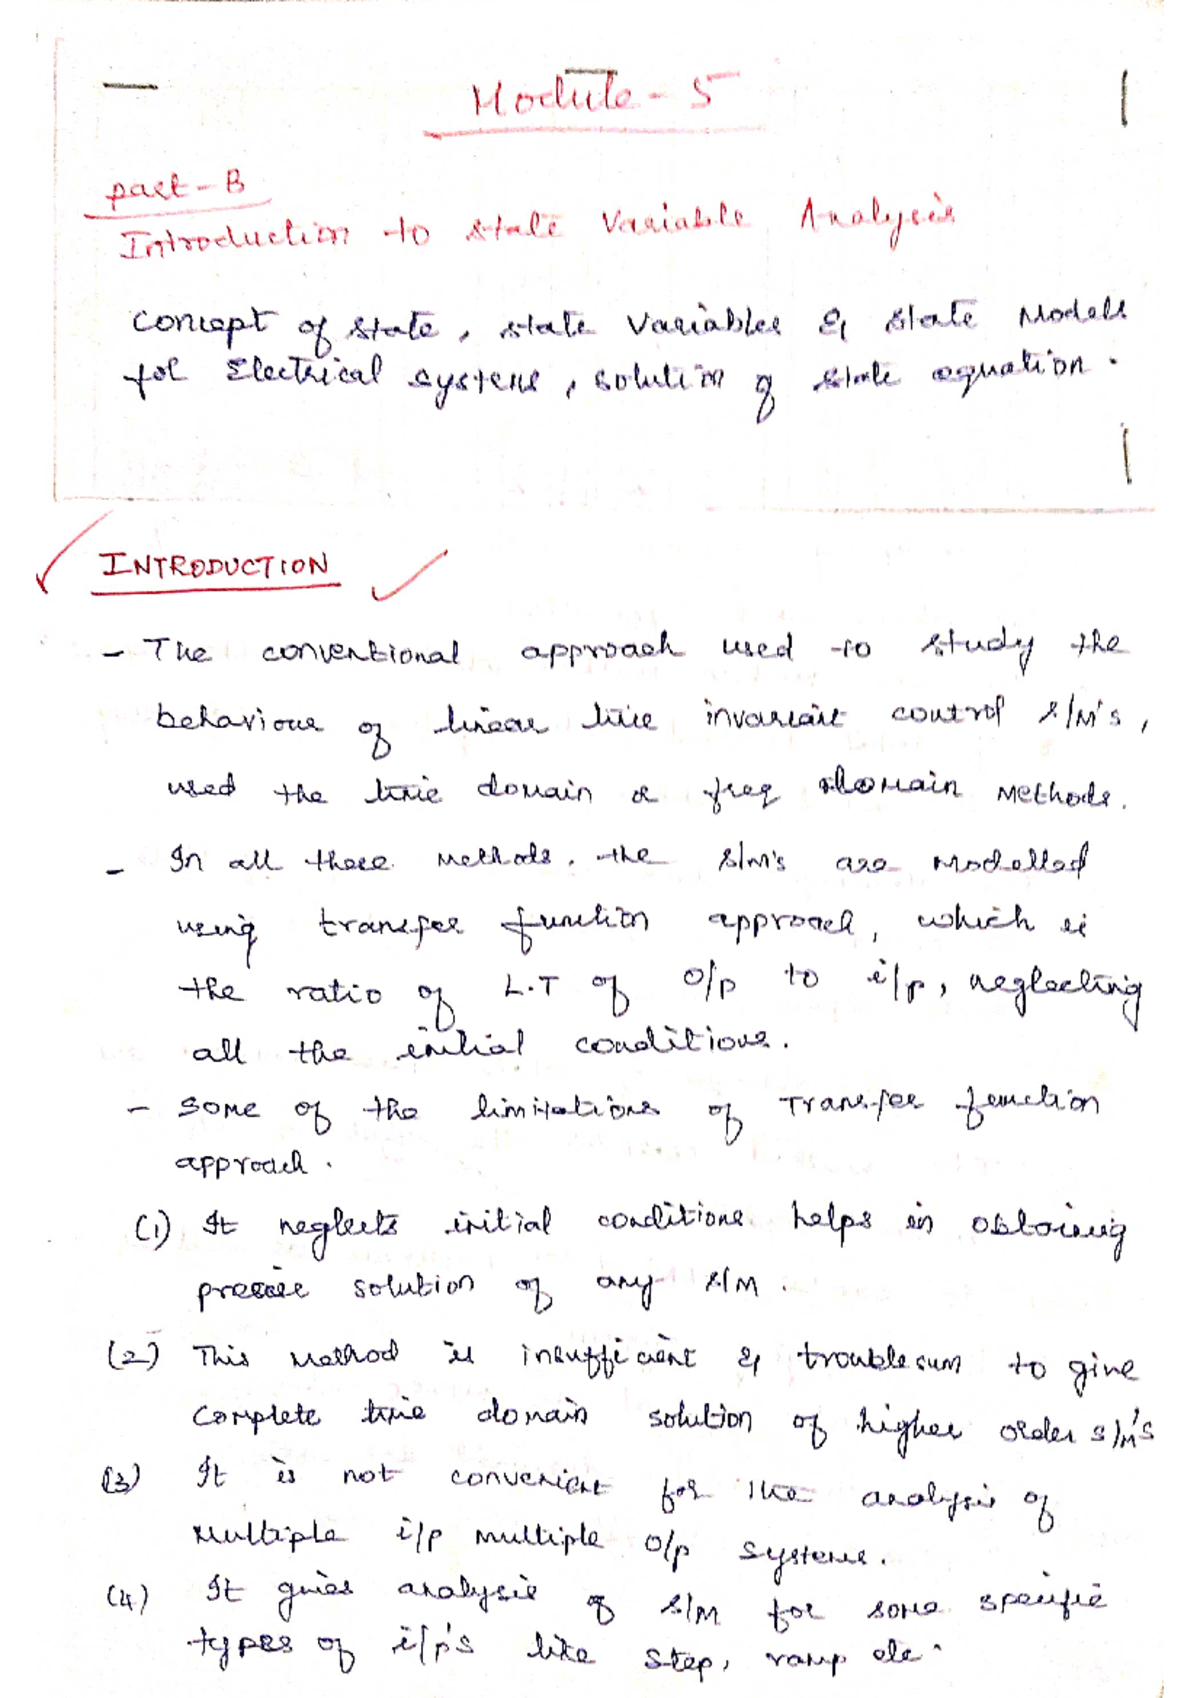 Module - 5
part - B
Introduction to state Variable Analysis
concept of state, state Variables & state Models
for Electrical systems, solution of state equation.
INTRODUCTION
- The conventional approach used to study the
behaviour of linear time invariant control s/m's,
used the time domain & freq domain methods.
- In all these methods, the s/m's are modelled
using transfer function approach, which is
the ratio of L.T of o/p to i/p, neglecting
all the initial conditions.
- some of the limitations of Transfer function
approach.
(1) It neglects initial conditions helps in obtaining
precise solution of any s/m.
(2) This method is insufficient & troublesum to give
complete time domain solution of higher order s/m's
(3) It is not convenient for the analysis of
multiple i/p multiple o/p systems.
(4) It gives analysis of s/m for some specific
types of i/p's like step, ramp etc.